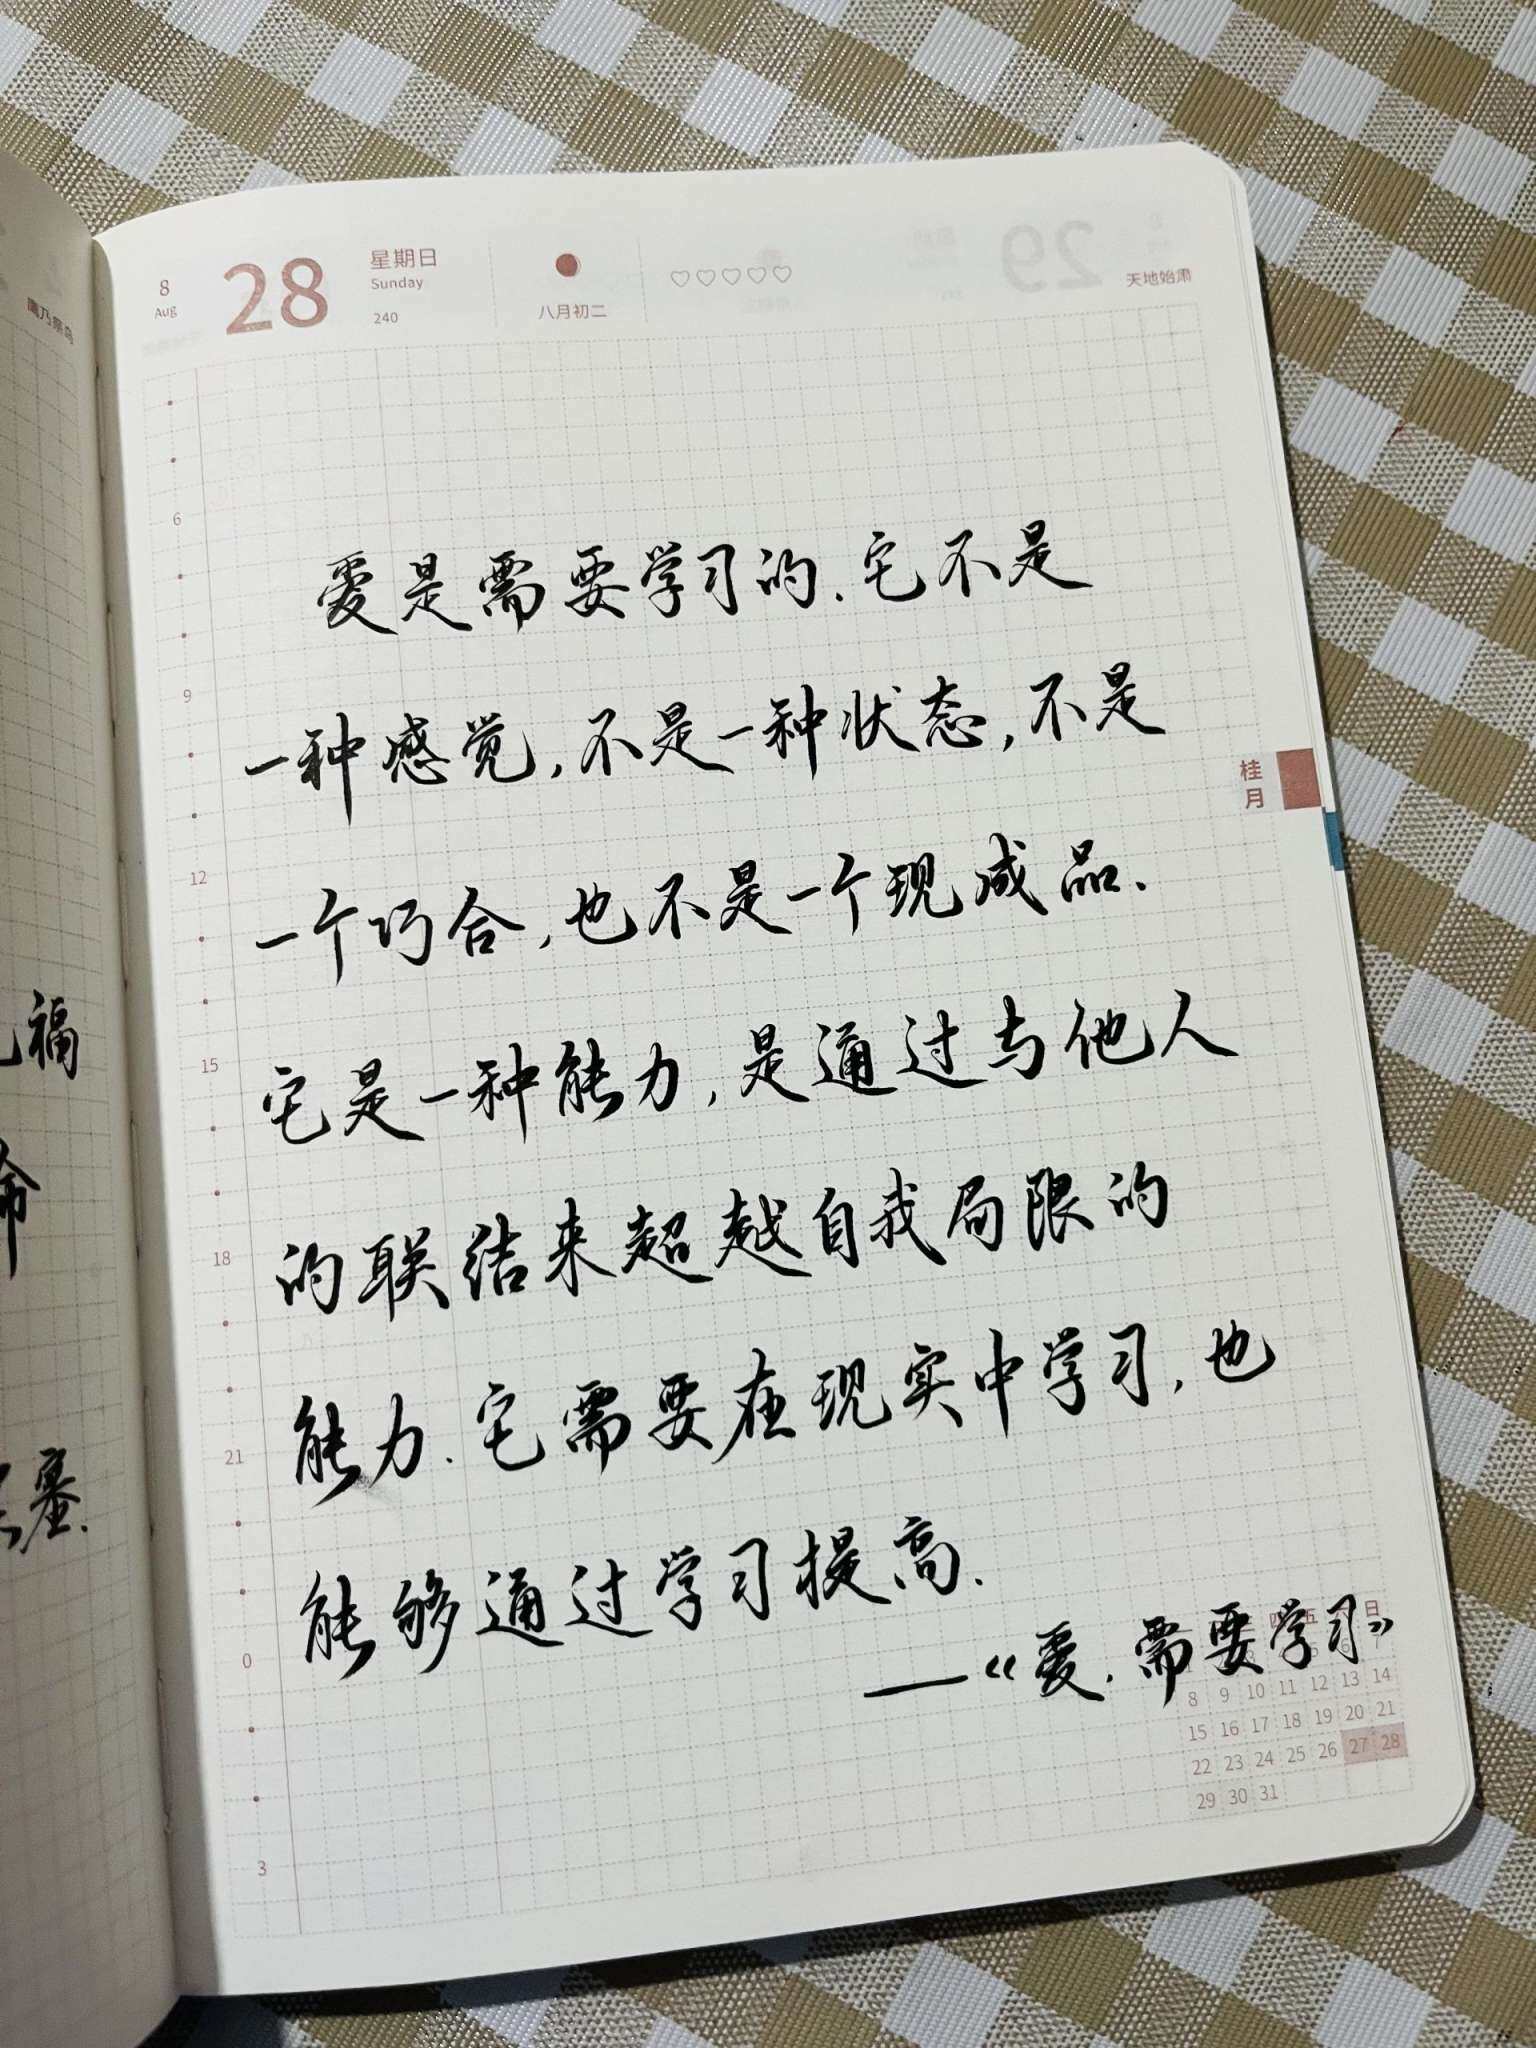 8
Aug
28
星期日
Sunday
240
八月初二
天地始肃
鹰乃祭鸟
6
爱是需要学习的.它不是
9
一种感觉,不是一种状态,不是
桂月
12
一个巧合,也不是一个现成品.
15
它是一种能力,是通过与他人
18
的联结来超越自我局限的
21
能力.它需要在现实中学习,也
能够通过学习提高.
0
——《爱,需要学习》
3
福
命
塞.
四 五 六 日
8 9 10 11 12 13 14
15 16 17 18 19 20 21
22 23 24 25 26 27 28
29 30 31